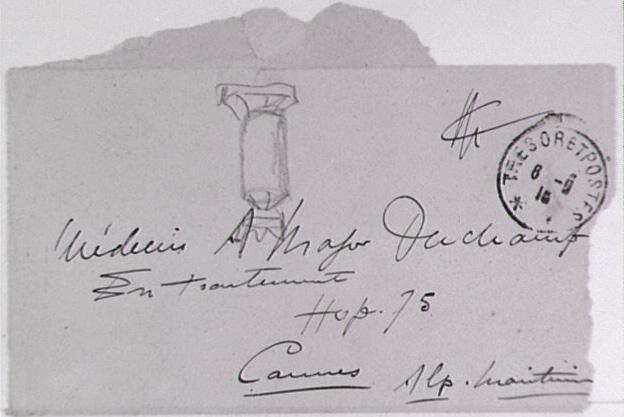 TRESOR ET POSTES
8 -6
16
Médecin A Major
En traitement
Hop. 75
Cannes Alp. Maritim